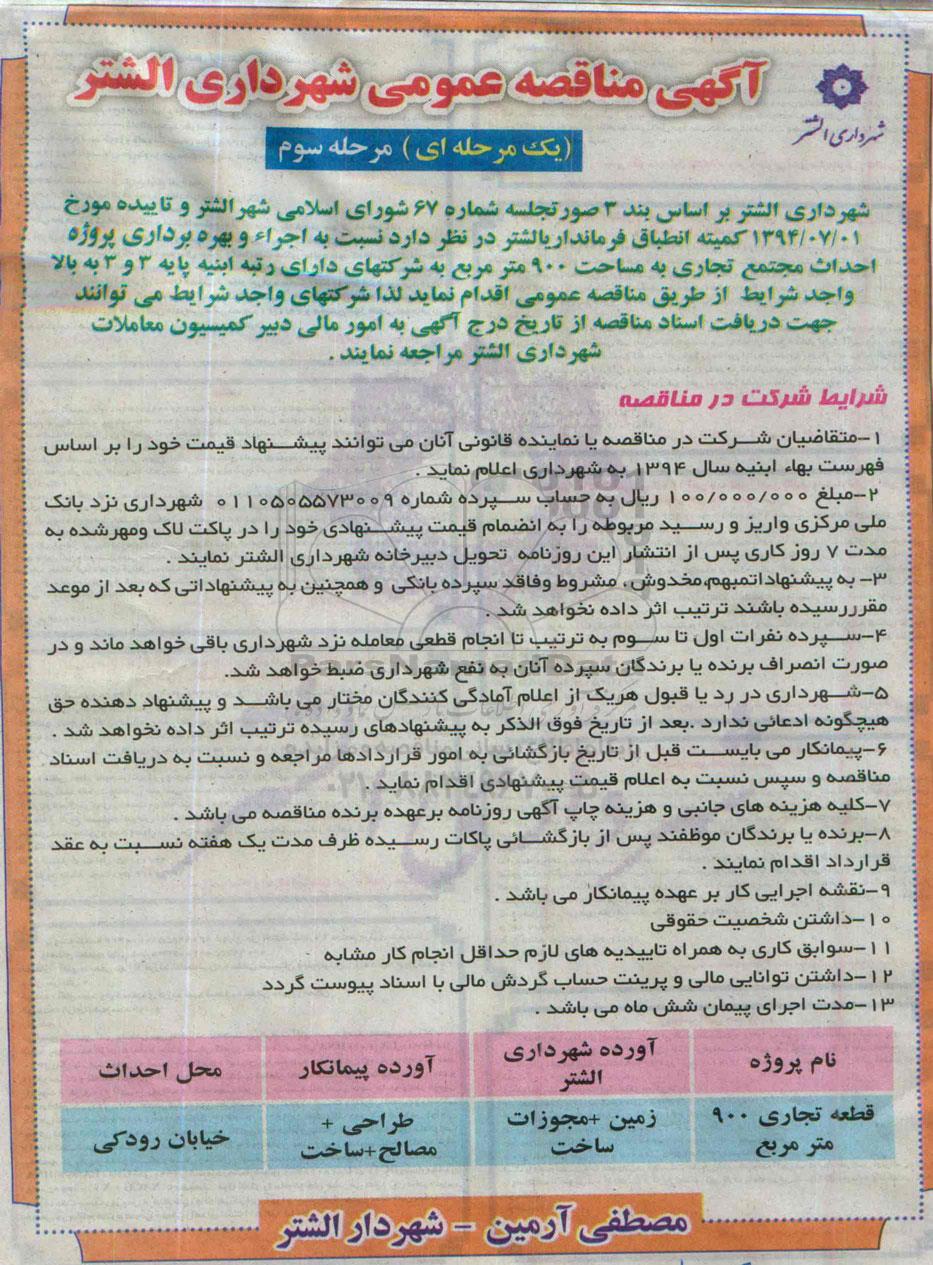 آگهی مناقصه عمومی شهرداری الشتر
شهرداری الشتر
(یک مرحله ای ) مرحله سوم
شهرداری الشتر بر اساس بند ۳ صورتجلسه شماره ۶۷ شورای اسلامی شهر الشتر و تاییده مورخ
۱۳۹۴/۰۷/۰۱ کمیته انطباق فرمانداریالشتر در نظر دارد نسبت به اجراء و بهره برداری پروژه
احداث مجتمع تجاری به مساحت ۹۰۰ متر مربع به شرکتهای دارای رتبه ابنیه پایه ۳ و ۳ به بالا
واجد شرایط از طریق مناقصه عمومی اقدام نماید لذا شرکتهای واجد شرایط می توانند
جهت دریافت اسناد مناقصه از تاریخ درج آگهی به امور مالی دبیر کمیسیون معاملات
شهرداری الشتر مراجعه نمایند .
شرایط شرکت در مناقصه
۱-متقاضیان شرکت در مناقصه یا نماینده قانونی آنان می توانند پیشنهاد قیمت خود را بر اساس
فهرست بهاء ابنیه سال ۱۳۹۴ به شهرداری اعلام نماید .
۲-مبلغ ۱۰۰/۰۰۰/۰۰۰ ریال به حساب سپرده شماره ۰۱۱۰۵۰۵۵۷۳۰۰۹ شهرداری نزد بانک
ملی مرکزی واریز و رسید مربوطه را به انضمام قیمت پیشنهادی خود را در پاکت لاک ومهرشده به
مدت ۷ روز کاری پس از انتشار این روزنامه تحویل دبیرخانه شهرداری الشتر نمایند .
۳- به پیشنهاداتمبهم،مخدوش، مشروط وفاقد سپرده بانکی و همچنین به پیشنهاداتی که بعد از موعد
مقرررسیده باشند ترتیب اثر داده نخواهد شد .
۴-سپرده نفرات اول تا سوم به ترتیب تا انجام قطعی معامله نزد شهرداری باقی خواهد ماند و در
صورت انصراف برنده یا برندگان سپرده آنان به نفع شهرداری ضبط خواهد شد.
۵-شهرداری در رد یا قبول هریک از اعلام آمادگی کنندگان مختار می باشد و پیشنهاد دهنده حق
هیچگونه ادعائی ندارد .بعد از تاریخ فوق الذکر به پیشنهادهای رسیده ترتیب اثر داده نخواهد شد .
۶-پیمانکار می بایست قبل از تاریخ بازگشائی به امور قراردادها مراجعه و نسبت به دریافت اسناد
مناقصه و سپس نسبت به اعلام قیمت پیشنهادی اقدام نماید .
۷-کلیه هزینه های جانبی و هزینه چاپ آگهی روزنامه برعهده برنده مناقصه می باشد .
۸-برنده یا برندگان موظفند پس از بازگشائی پاکات رسیده ظرف مدت یک هفته نسبت به عقد
قرارداد اقدام نمایند .
۹-نقشه اجرایی کار بر عهده پیمانکار می باشد .
۱۰-داشتن شخصیت حقوقی
۱۱-سوابق کاری به همراه تاییدیه های لازم حداقل انجام کار مشابه
۱۲-داشتن توانایی مالی و پرینت حساب گردش مالی با اسناد پیوست گردد
۱۳-مدت اجرای پیمان شش ماه می باشد .
نام پروژه
آورده شهرداری
الشتر
آورده پیمانکار
محل احداث
قطعه تجاری ۹۰۰
متر مربع
زمین +مجوزات
ساخت
طراحی +
مصالح+ساخت
خیابان رودکی
مصطفی آرمین - شهردار الشتر